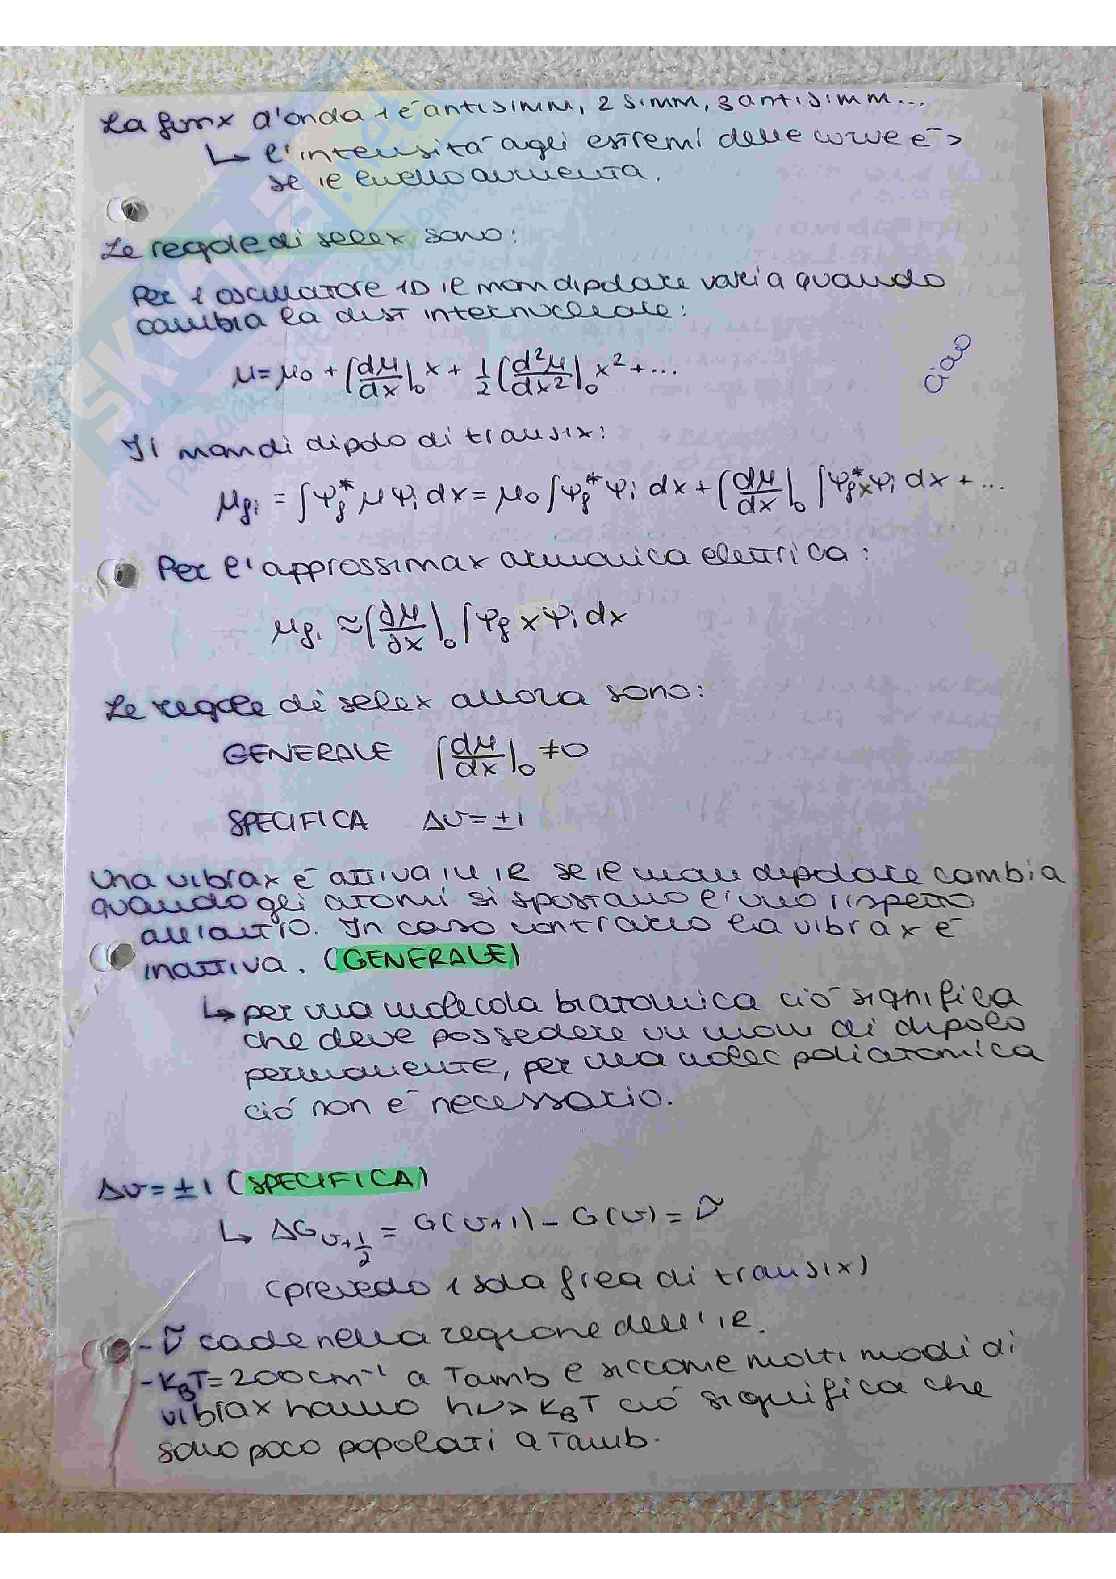 La funx d'onda 1 è antisimm, 2 simm, 3 antisimm...
↳ l'intensità agli estremi delle curve è >
se il livello aumenta.
Le regole di selex sono:
Per 1 oscillatore 1D il mom dipolare varia quando
cambia la dist internucleare:
μ = μ₀ + (dμ/dx)₀ x + 1/2 (d²μ/dx²)₀ x² + ...
Ciao
Il mom di dipolo di transix:
μfi = ∫ψf* μ ψi dx = μ₀ ∫ψf* ψi dx + (dμ/dx)₀ ∫ψf* x ψi dx + ...
Per l'approssimax armonica elettrica:
μfi ≈ (∂μ/∂x)₀ ∫ψf x ψi dx
Le regole di selex allora sono:
GENERALE (dμ/dx)₀ ≠ 0
SPECIFICA Δv = ±1
Una vibrax è attiva in IR se il mom dipolare cambia
quando gli atomi si spostano l'uno rispetto
all'altro. In caso contrario la vibrax è
inattiva. (GENERALE)
↳ per una molecola biatomica ciò significa
che deve possedere un mom di dipolo
permanente, per una molec poliatomica
ciò non è necessario.
Δv = ±1 (SPECIFICA)
↳ ΔG v+1/2 = G(v+1) - G(v) = ṽ
(prevedo 1 sola freq di transix)
- ṽ cade nella regione dell'IR.
- KBT = 200 cm⁻¹ a Tamb e siccome molti modi di
vibrax hanno hν > KBT ciò significa che
sono poco popolati a Tamb.